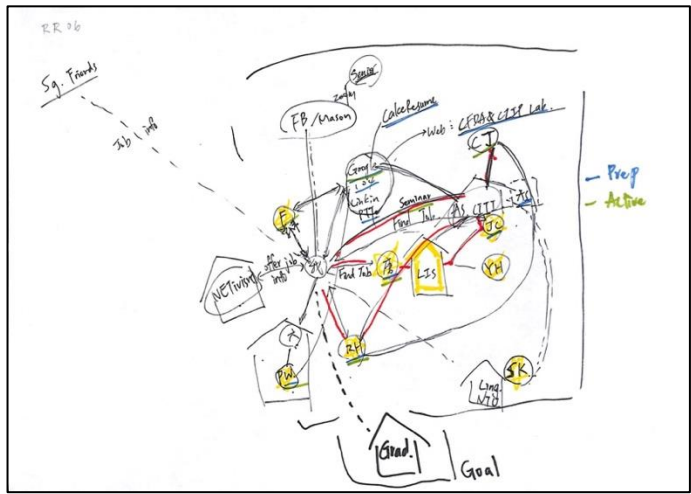 RR 06
Sg. Friends
Job info
Senior
FB/Mason
CakeResume
Web: CFDA & CIIP Lab.
CJ
Google
Linkin
PTT
Seminar
Find Job
AS
CIII
AC
JC
Prep
Active
F
NETivism
offer job
info
Find Job
LIS
YH
RH
PW
SK
Ling.
NTU
Grad.
Goal